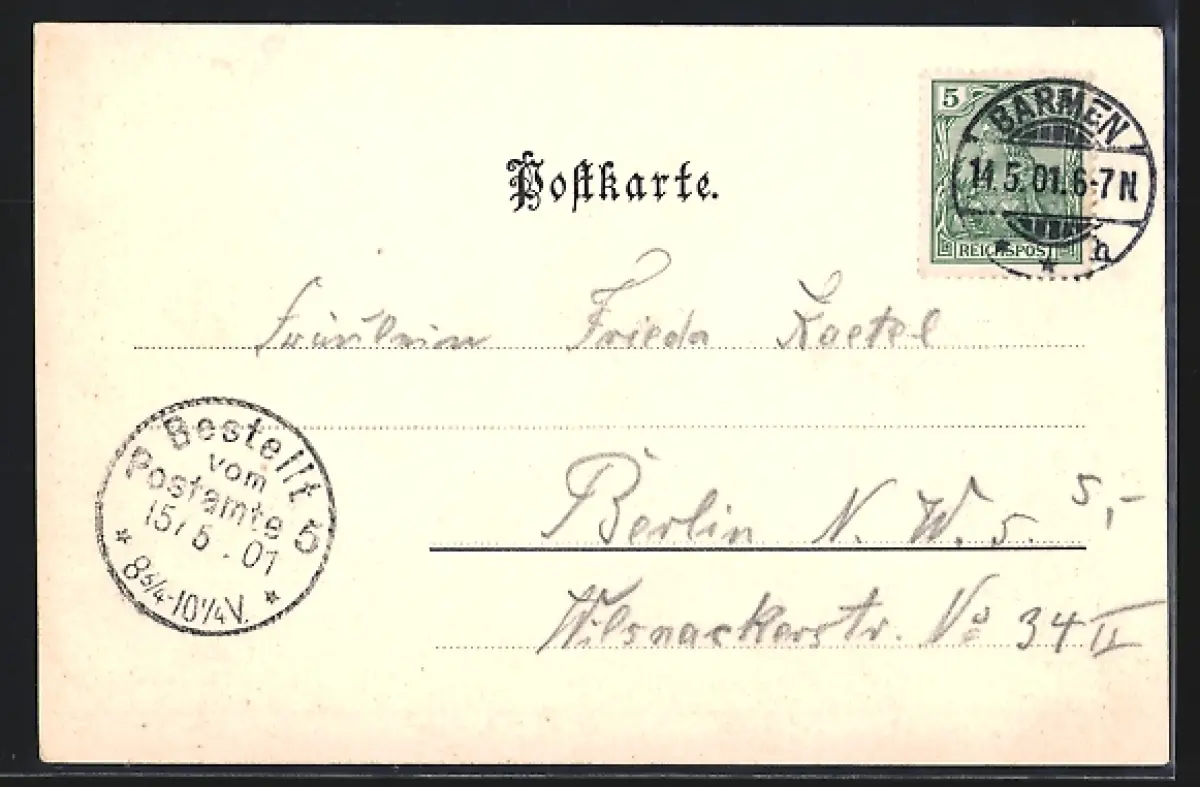 5
REICHSPOST
BARMEN
14.5.01.6-7N
h
Postkarte.
Fräulein Frieda
Berlin N. W. 5. 5,-
Wilsnackerstr. No 34 II
Bestellt
vom
Postamte 5
15/5.01
8¾-10¼V.